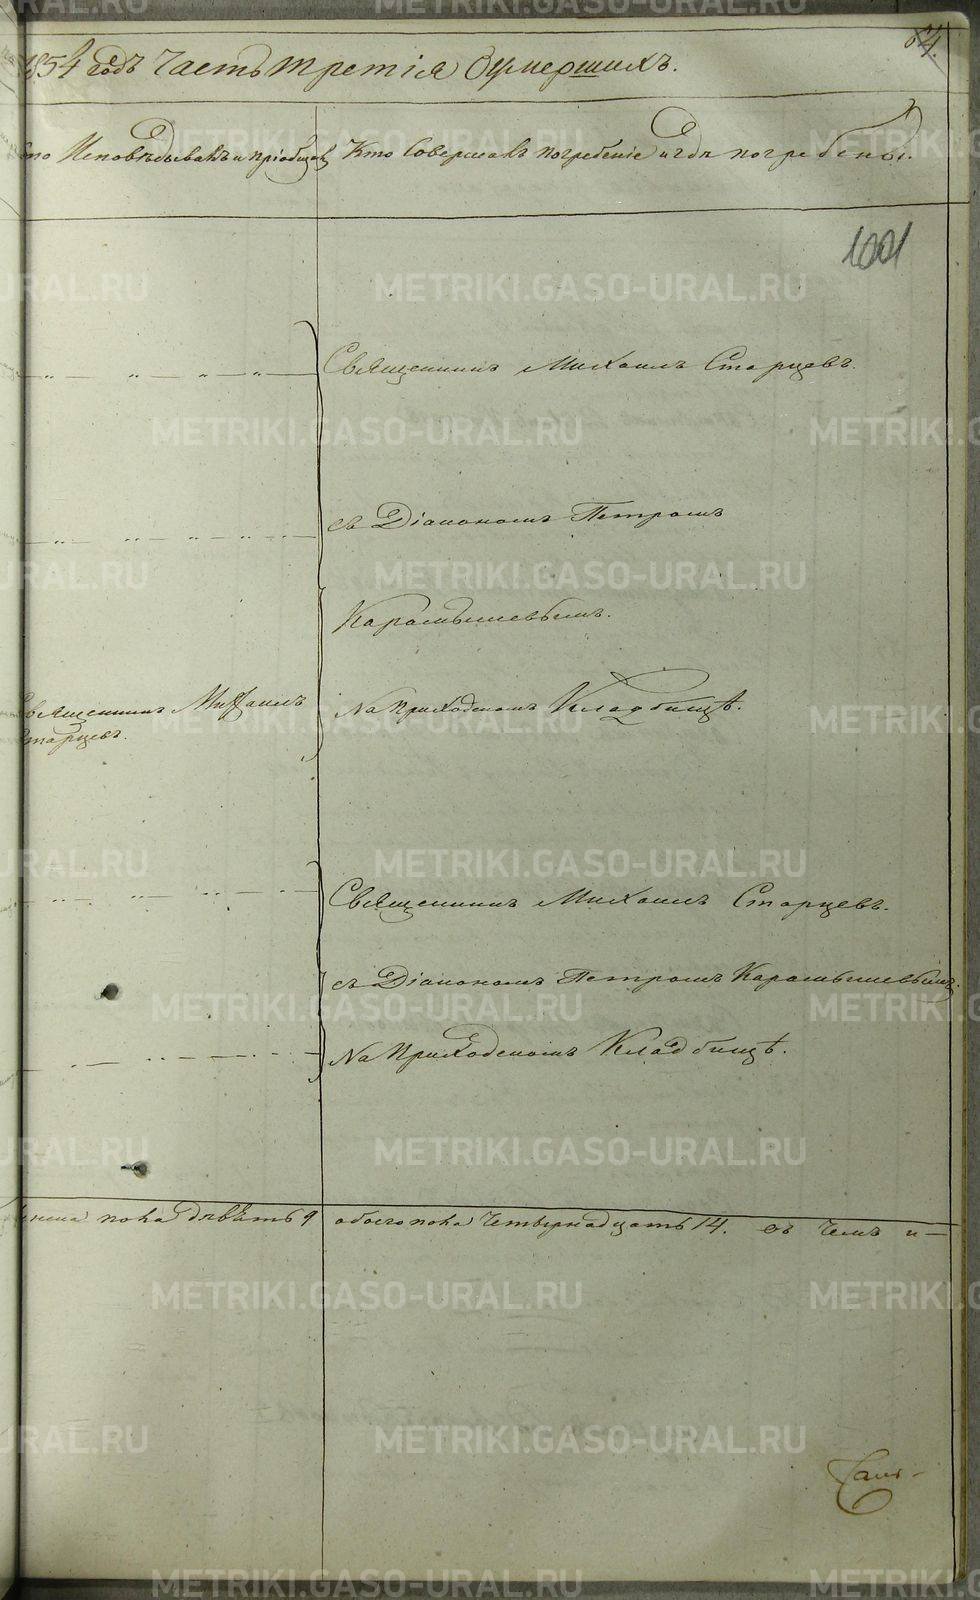 64.
1854 годъ Часть третія Оумершихъ.
Исповѣдывалъ и пріобщалъ
Кто Совершалъ погребеніе и гдѣ погребены.
1001
Священникъ Михаилъ Старцевъ.
съ Діакономъ Петромъ
Карамышевымъ.
Священникъ Михаилъ
Старцевъ.
На Приходскомъ Кладбищѣ.
Священникъ Михаилъ Старцевъ.
съ Діакономъ Петромъ Карамышевымъ.
На Приходскомъ Кладбищѣ.
пола девять 9 обоего пола Четырнадцать 14. Въ Чемъ и—
METRIKI.GASO-URAL.RU